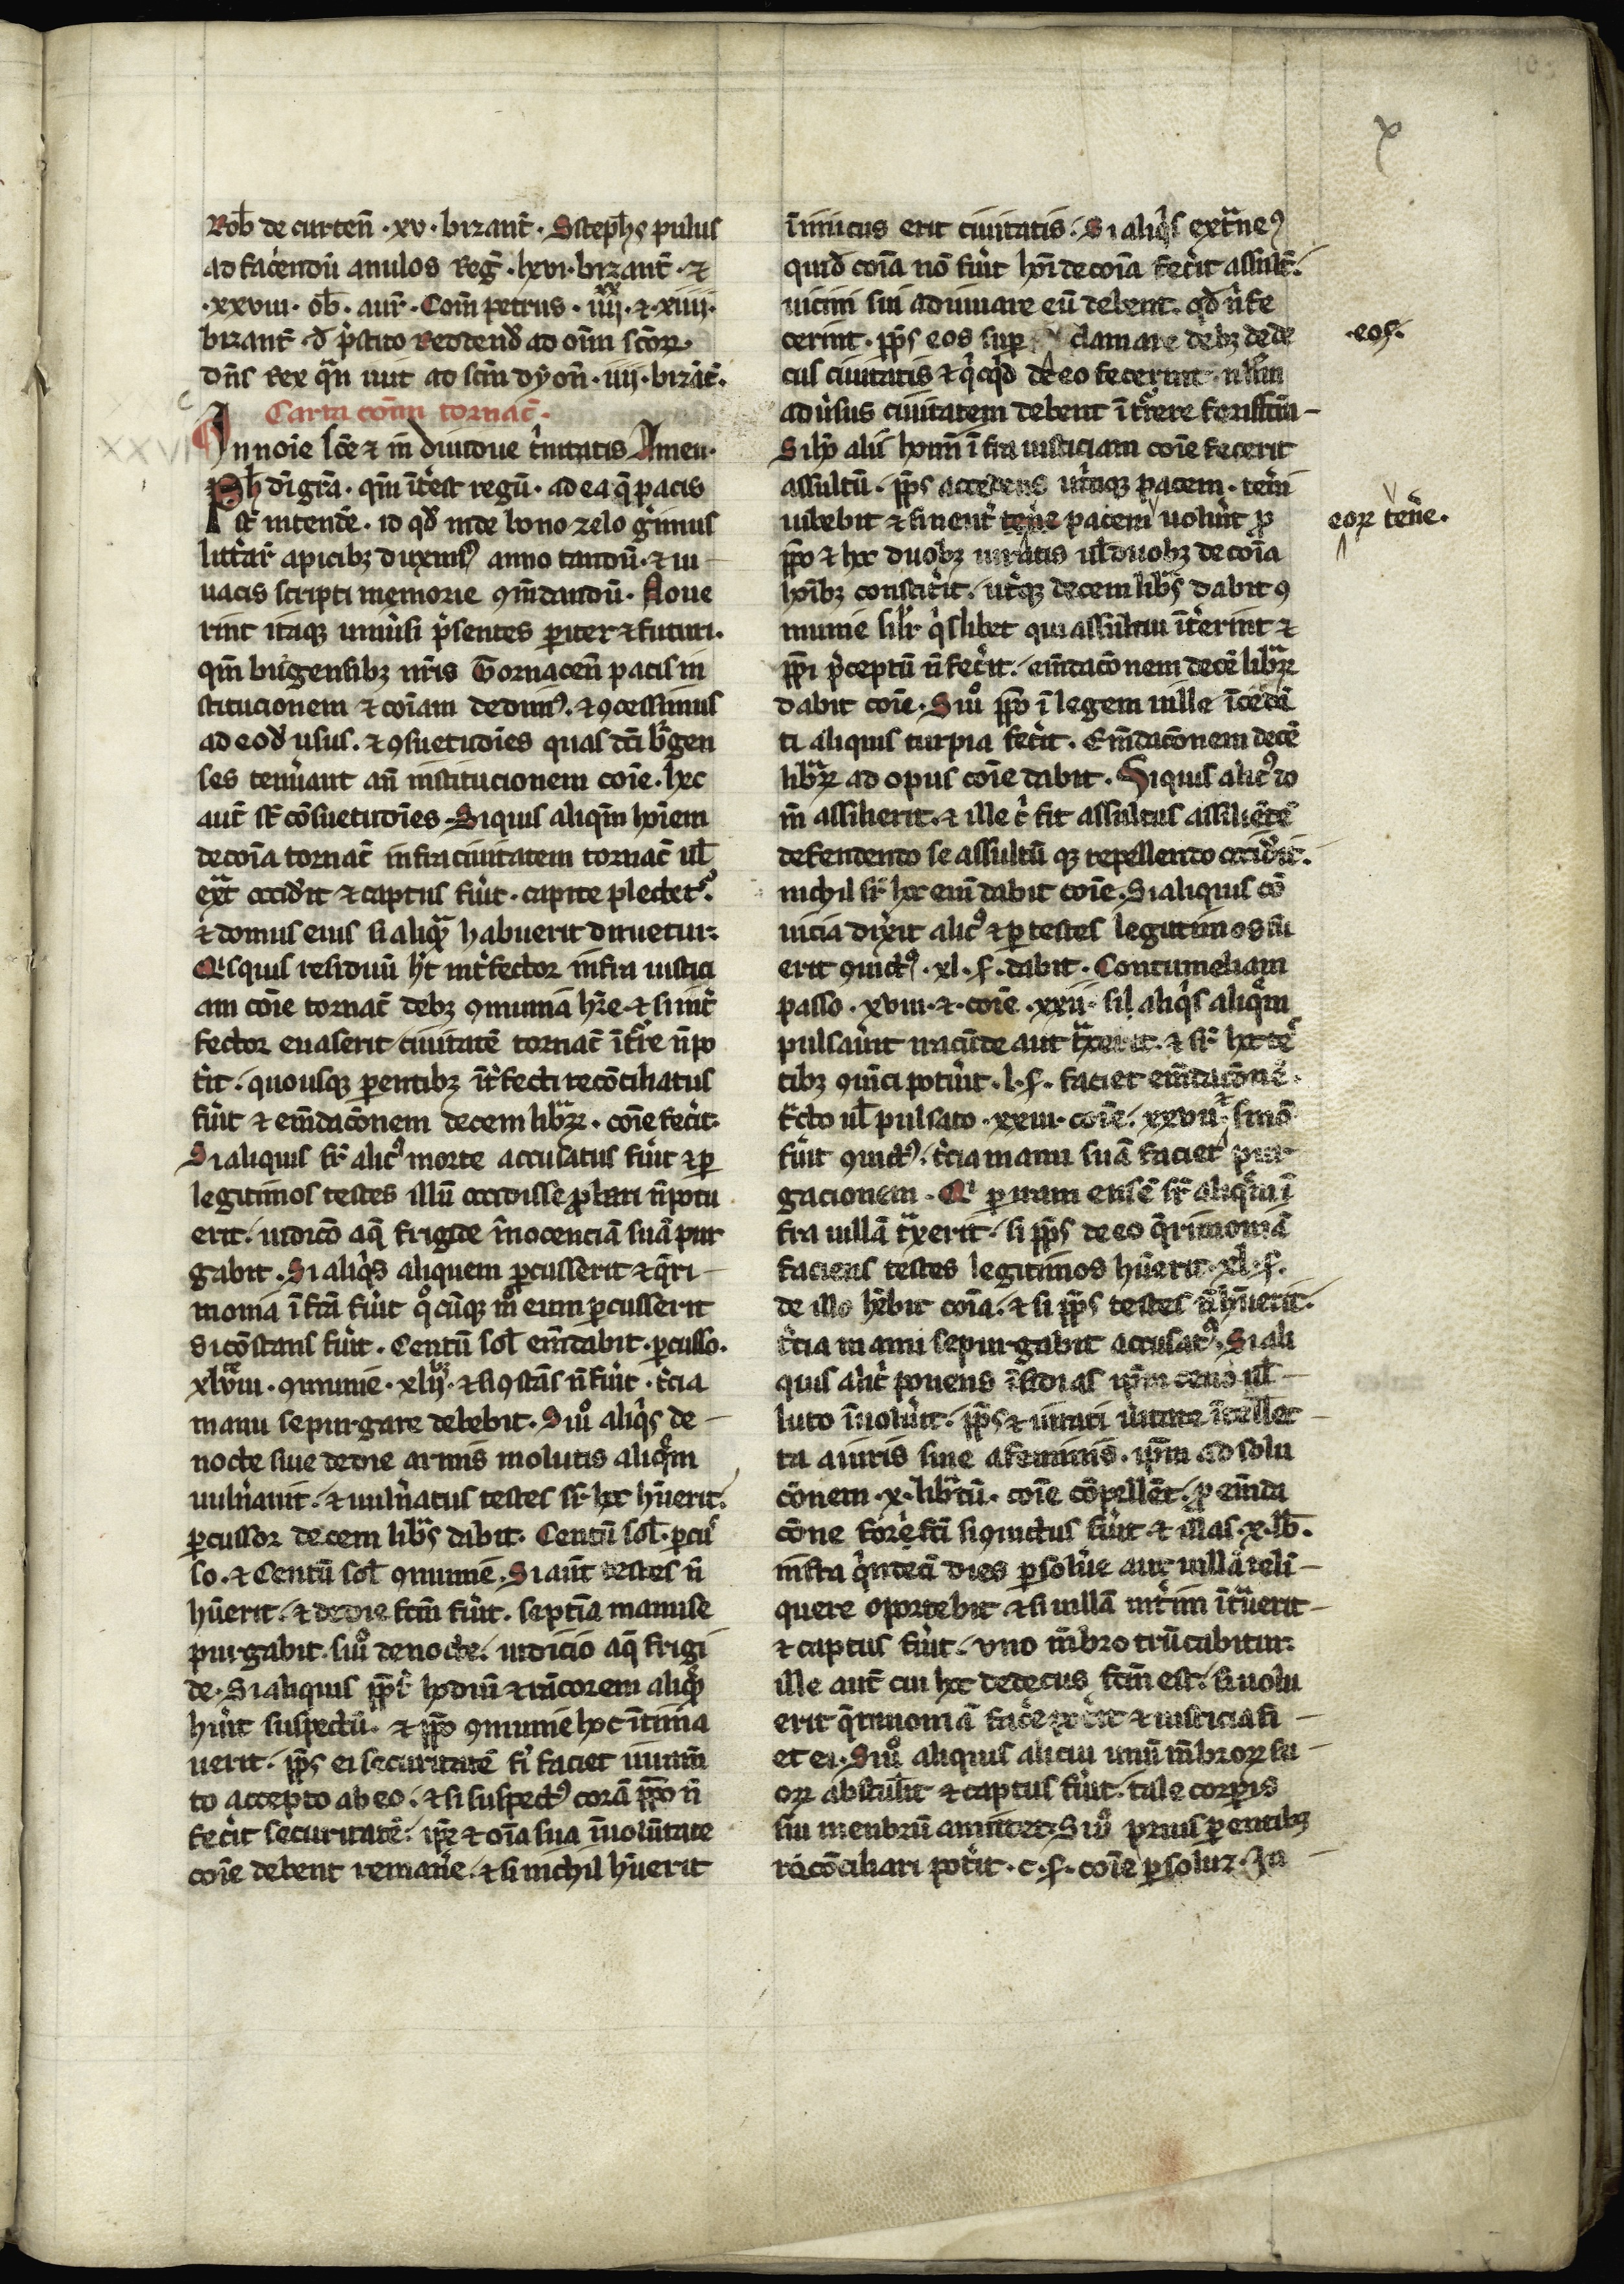 x
Rob̄ de curteñ ·xv· bizant̄· Stepħs pulus
ad faciendū anulos Reg̃ ·lxvi· bizant̄· ⁊
·xxviii· ob̄· aur̄· Com̄ petrus · iiii^xx· ⁊ ·xiiii·
bizant̄· d̄ p̄stito Reddend̄ ad om̄iū sc̄or̄ꝝ·
dn̄s Rex qn̄ iuit ad sc̄m dyoñ· iiij· bizāt̄·
Carta com̄i tornac̄·
In noīe sc̄e ⁊ in diuidue t̓nitatis Amen·
Pħ dī gr̄a· qm̄ int̓est regū· ad ea q̄ pacis
st̄ intende· id qd̄ inde bono zelo ger̓imus
litt̓ar̄ apicibꝫ duxim⁹ annotandū· ⁊ ui
uacis scripti memorie ꝯm̄dandū· Noue
rint itaqꝫ uniu̓si p̓sentes pariter ⁊ futuri·
qm̄ burgensibꝫ nr̄is Tornaceñ pacis in
stitucionem ⁊ coīam dedim⁹· ⁊ ꝯcessimus
ad eosd̄ usus· ⁊ ꝯsuetudīes quas dc̄i bʼgen
ses tenu̓ant añ institucionem coīe· hec
aut̄ st̄ cōsuetudīes· Siquis aliqm̄ hoīem
de coīa tornac̄ infra ciuitatem tornac̄ ul̄
ext̓ occid̓it ⁊ captus fu̓it· capite plectet^r·
⁊ domus eius si aliq̄ habuerit diruetur·
Q̓squis residuū h̄t int̓fector infra iustici
am coīe tornac̄ debꝫ ꝯmunia hr̄e· ⁊ si int̓
fector euaserit ciuitatē tornac̄ īt^are ñ po
t̓it· quousqꝫ parentibꝫ īt̓fecti recōciliatus
fu̓it ⁊ em̄dacōnem decem libr̄aꝝ· coīe fec̓it·
Si aliquis sr̄ alic⁹ morte accusatus fu̓it ⁊ ꝑ
legitimos testes illū occidisse ꝓbari ñ potu
erit· iudicō aq̄ frigide īnocenciā suā pur
gabit· Si aliq̓s aliquem ꝑcusserit ⁊ q̄ri
monia īf̄ta fu̓it q^ocūqꝫ m^o eum ꝑcusserit
si cōstans fu̓it· Centū sol̄ em̄dabit· ꝑcusso·
xlviii· ꝯmunie· xlij· ⁊ si ꝯstās ñ fu̓it· t̓cia
manu se purgare debebit· Siu^o aliq̓s de
nocte siue de die armis molutis aliq̄m
uuln̓auit· ⁊ uuln̓atus testes sr̄ hoc hu̓erit·
ꝑcussor decem libr̄s dabit· Centū sol̄· ꝑcus
so· ⁊ Centū sol̄ ꝯmunie· Si aut̄ testes ñ
hu̓erit· ⁊ de die fc̄m fu̓it· septīa manu se
purgabit· siu^o de nocte· iudicio aq̄ frigi
de· Si aliquis ppt̓ hodiū ⁊ rācorem aliq̄m
hu̓it suspectū· ⁊ ppō ꝯmunie hoc ītima
uerit· pp̄s ei securitatē fi̓ faciet iuram̄
to accepto ab eo· ⁊ si suspect⁹ corā ppō ñ
fec̓it securitatē· ip̄e ⁊ oīa sua ī uolūtate
coīe debent reman̓e· ⁊ si nichil hu̓erit
īimicus erit ciuitatis· Si aliq̓s ext^ane⁹
qui d̄ coīa nō fu̓it hōi de coīa fec̓it assult̄·
uicini sui adiuuare eū debent· qd̄ ñ fe
cerint· pp̄s eos sup clamare debꝫ dede
·eos·
cus ciuitatis ⁊ q̓cq̓d de eo fecerint· nl̄lm
adu̓sus ciuitatem debent īcur̓ere forisfc̄m
Si hō alii hōini īfra iusticiam coīe fecerit
assultū· pp̄s accedens ut̓iqꝫ pacem· ten̓i
iubebit ⁊ si neut̓ ten̓e pacem uolu̓it ꝓ
eoꝝ ten̓e·
ppō ⁊ hoc duobꝫ iuratis ul̄ duobꝫ de coīa
hōibꝫ constit̓it· ut̓qꝫ decem libr̄s dabit ꝯ
munie sīlr̄ q̓slibet qui assultui īt̓erint ⁊
ppi p̓ceptū ñ fec̓it· em̄dacōnem decē libr̄aꝝ
dabit coīe· Siu^o ppō ī legem uille īcede
ti aliquis turpia fec̓it· Em̄dacōnem decē
libr̄aꝝ ad opus coīe dabit· Siquis alic⁹ do
m̄ assilierit· ⁊ ille c̓ fit assultus assiliētē
defendendo se assultū qꝫ repellendo occid̓it·
nichil sr̄ hoc em̄dabit coīe· Si aliquis cō
uicia dix̓it alic⁹ ⁊ ꝑ testes legitimos fu
erit ꝯuict⁹· xl· ſ· dabit· Contumeliam
passo· xviii· ⁊· coīe· xxii· sil̄ aliq̓s aliq̄m
pulsau̓it iracūde aut t^axerit· ⁊ sr̄ hoc tes
tibꝫ ꝯuīci potu̓it· l· ſ· faciet em̄dacōnē·
t^acto ul̄ pulsato· xxiii· coīe· xxvii· ⁊ si nō
fu̓it ꝯuict⁹· t̓cia manu suā faciet pur
gacionem· Q̓ ꝑ iram ensē sr̄ aliq̄m ī
fra uillā t^axerit· si pp̄s de eo q̄rimoniā
faciens testes legitimos hu̓erit· xl· ſ·
de illo hēbit coīa· ⁊ si pp̄s testes ñ hu̓erit·
t̓cia manu se purgabit accusat⁹· Si ali
quis alic̓ ponens īsidias ip̄m ceno ul̄
luto īuolu̓it· pp̄s ⁊ iurati u̓itate ītellec
ta a uiris siue a feminis· ip̄m ad solu
cōnem· x· libr̄tū· coīe cōpellēt· ꝓ em̄da
cōne forefc̄i si ꝯuictus fu̓it ⁊ illas· x· lb̄·
infra q̓ndecī dies ꝑsolu̓e aut uillā reli
quere oportebit ⁊ si uillā int̓im īt^auerit
⁊ captus fu̓it· uno m̄bro trūcabitur·
ille aut̄ cui hoc dedecus fc̄m est· si uolu
erit q̄rimoniā fac̓e pot̓it ⁊ iusticia fi
et ei· Siu^o aliquis alicui unū m̄broꝝ su
oꝝ abstul̓it ⁊ captus fu̓it· tale corꝑis
sui menbrū amittet· Siu^o prius parentibꝫ
recōciliari pot̓it· c· ſ· coīe ꝑsoluꝫ· In